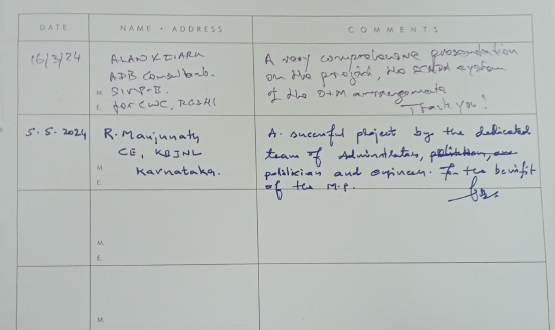 DATE
NAME • ADDRESS
COMMENTS
16/3/24
ALAN CLARK
ADB Consultant.
M. SIMP-II.
E. for CWC, DELHI
A very comprehensive presentation
on the project, the SCADA system
of the O+M arrangements
Thank you!
5.5.2024
R. Manjunath
CE, KBJNL
M. Karnataka.
E.
A successful project by the dedicated
team of Administrators,
politician and engineer. For the benifit
of the M.P.
M.
E.
M.